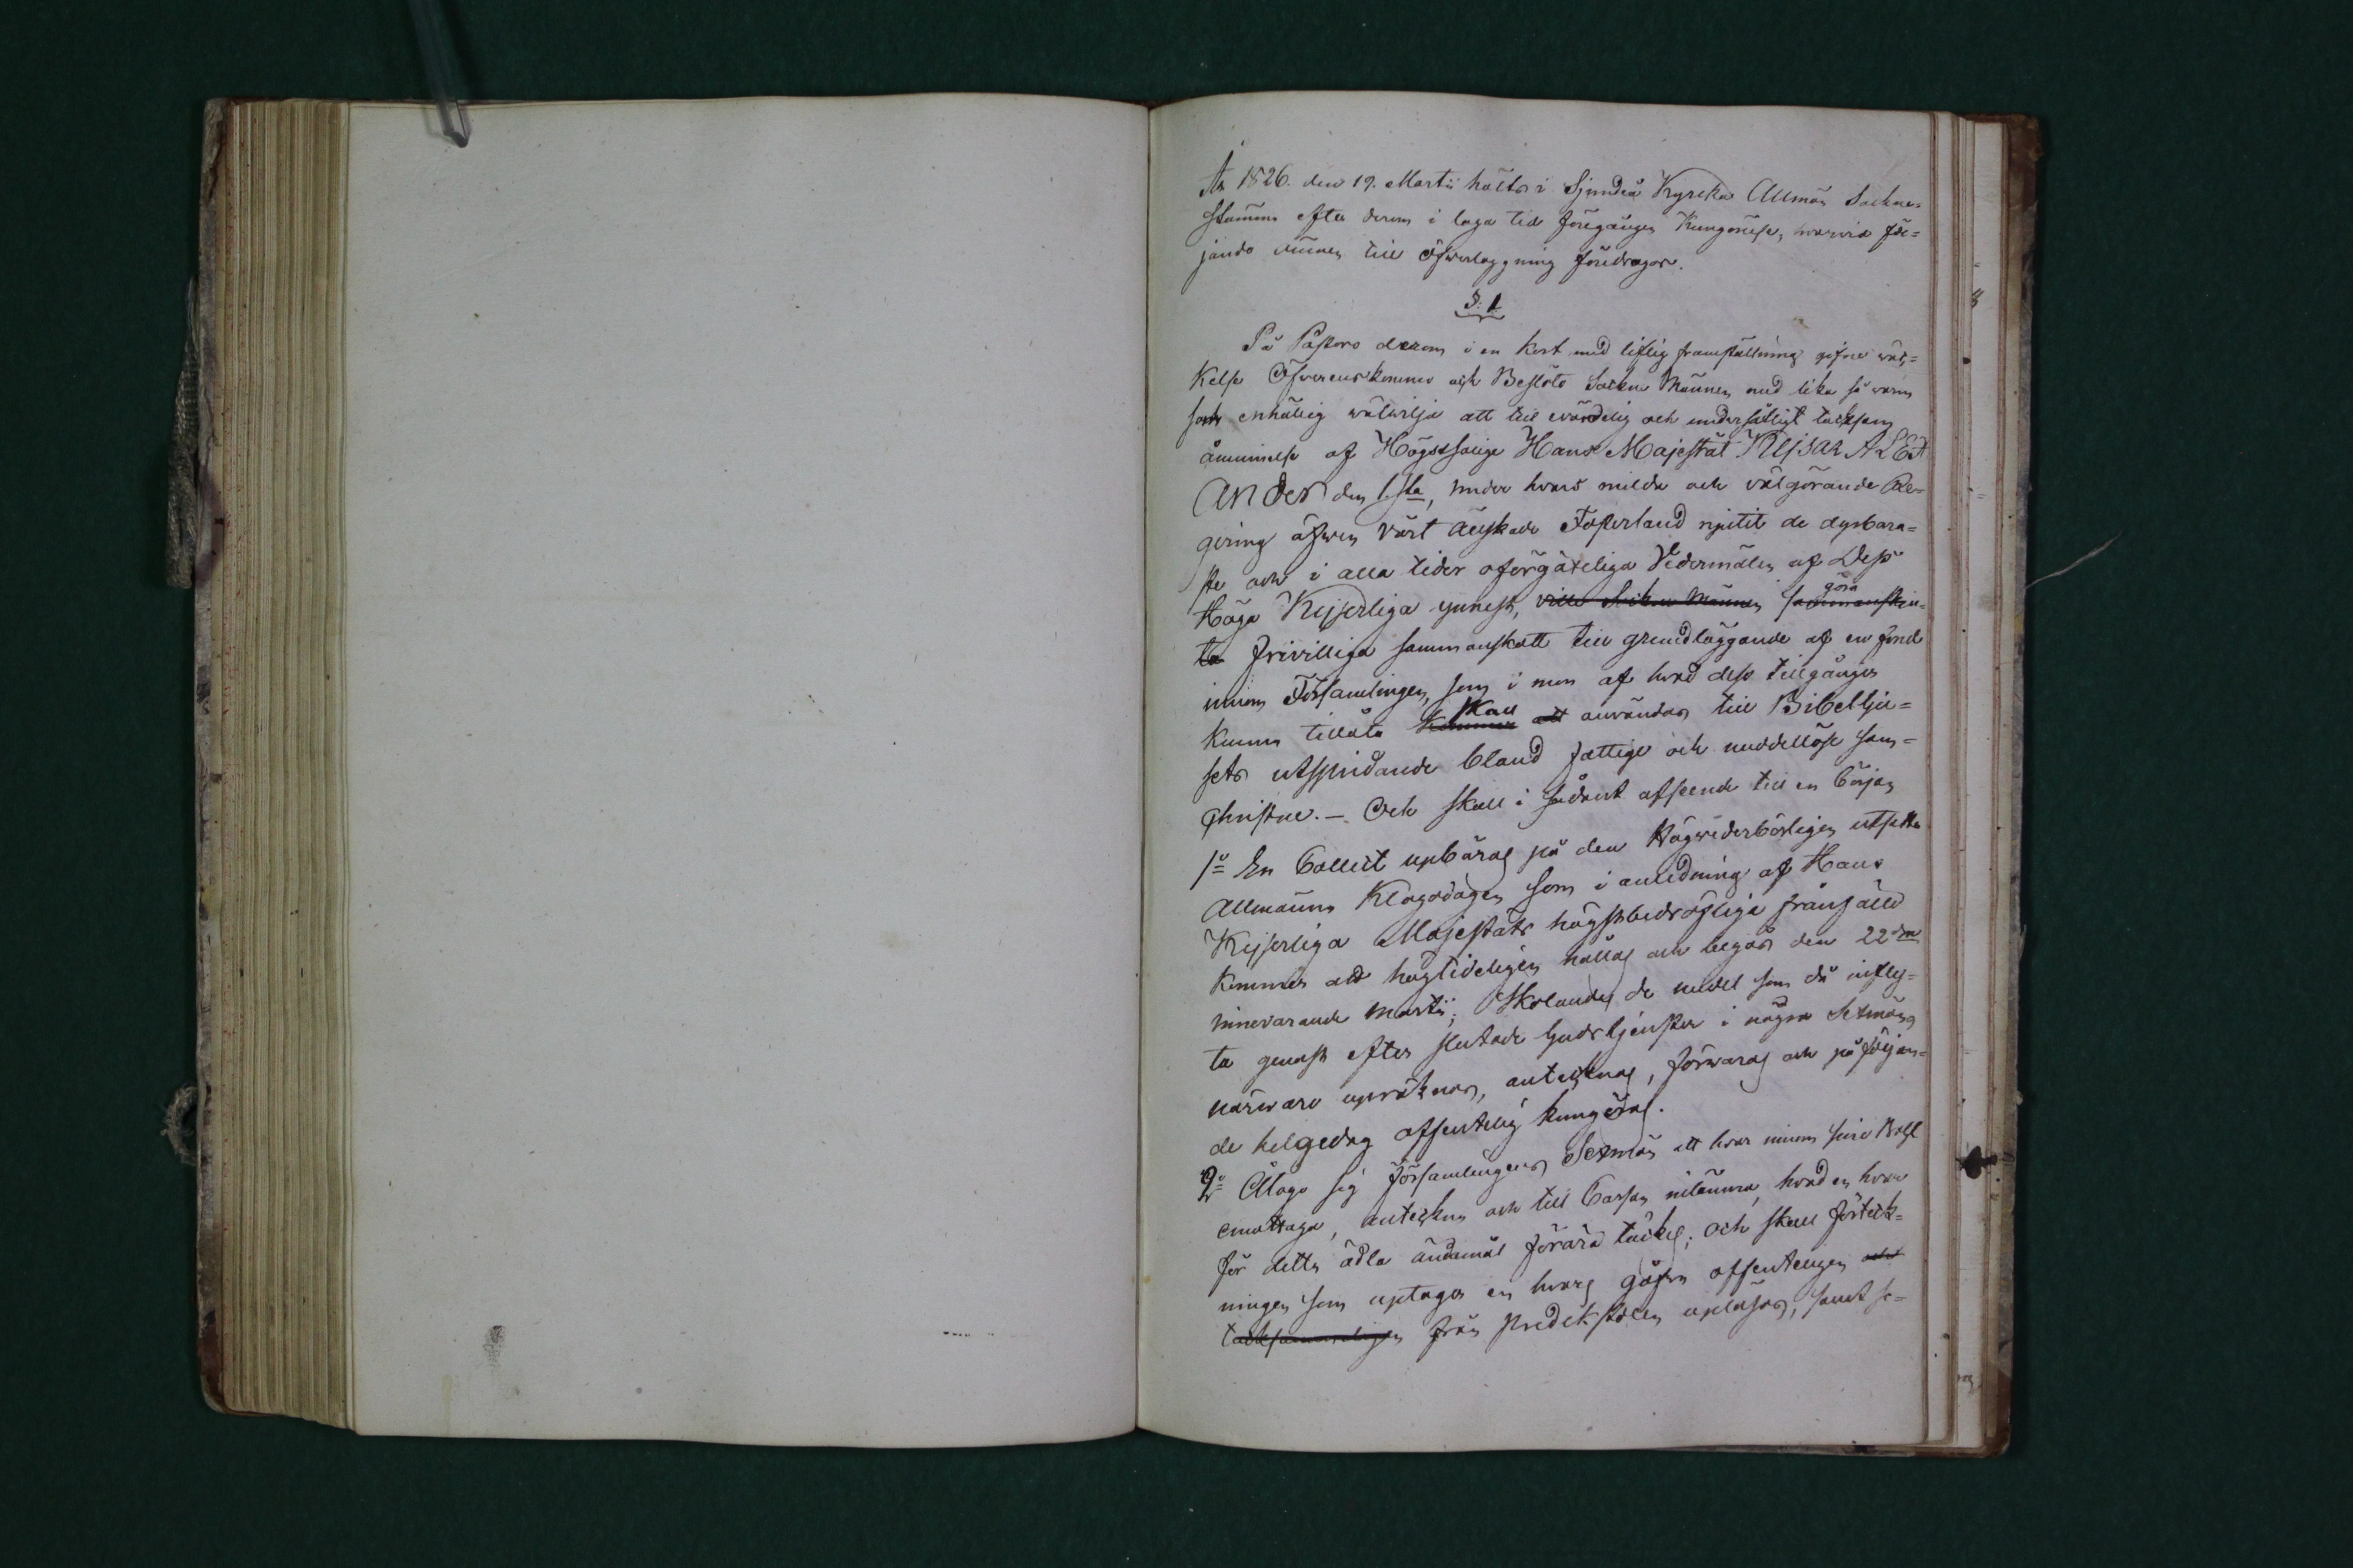 År 1826. den 19. Martii hölts i Sjundeå Kyrcka Allmän Sockne=
stämma efter derom i laga tid föregången Kungörelse, hwarvid föl=
jande ämnen till öfwerläggning föredrogos.
§. 1
På Pastors derom i en kort med liflig framställning gifne wäc=
kelse Öfwerenskommo och Beslöto Sockne Männen med lika så warm
som enhällig wälwilja att till evärdelig och undersåtligt tacksam
åminnelse af Högstsalige Hans Majestät Kejsar ALEX
Ander den 1sta, under hvars milda och välgörande Re=
gering äfwen Vårt älskade Fosterland njutit de dyrbara=
ste och i alla tider oförgäteliga Vedermälen af Dess
Höga Kejserliga ynnest, ville Sockne Männen samanskju= göra
ta frivilliga sammanskott till grundläggande af en fond
innom Församlingen, som i mon af hvad dess tillgångar
kunna tillåta kommer att skall användas till Bibel lju=
sets utspridande bland fattige och medellöse sam=
Christne. — Och skall i sådant afseende till en början
1o En Collect upbäras på den Högvederbörligen utsatta
Allmänna Klagodagen som i anledning af Hans
Kejserliga Majestäts högstbedröfliga frånfälle
kommer att högtideligen hållas och begås den 22dra
innevarande Martii; Skolandes de medel som då influ=
ta genast efter slutade Gudstjensten i några Sexmäns
närwaro upräknas, antecknas, förwaras och påföljan=
de helgedag offentelig kungöras.
2o Åtogo sig Församlingens Sexmän att hvar innom sine Rothl
emottaga, anteckna och till Cassan inlämna, hvad en hvar
för detta ädla ändamål förära täckes; och skall förteck=
ningen som uptager en hvars gåfva offenteligen och
tacksammeligen från predikstolen upläsas, samt se=